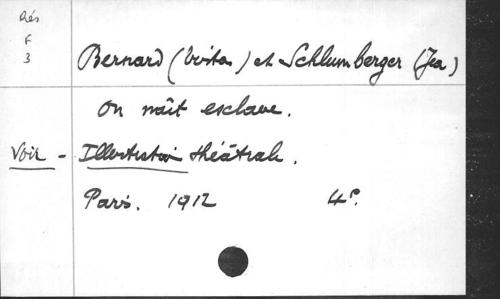 Rés
F
3
Bernard (Tristan) et Schlumberger (Jean)
On naît esclave.
Voir - Illustration théâtrale.
Paris. 1912 4°.